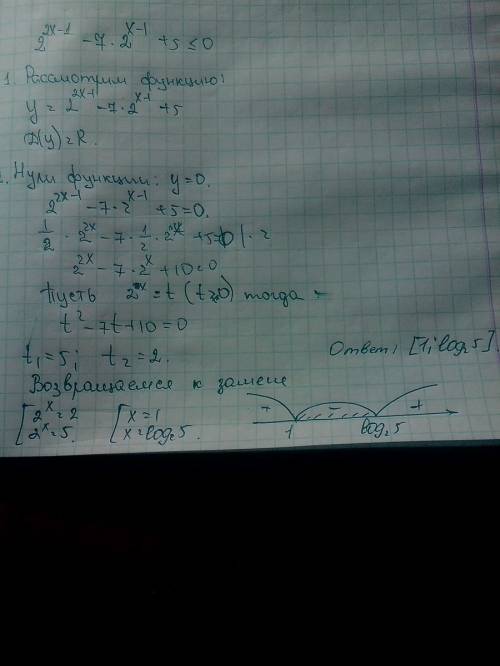 2^{2x-1} - 7 · 2^{x-1} + 5 ≤ 0
1. Рассмотрим функцию:
y = 2^{2x-1} - 7 · 2^{x-1} + 5
D(y) = R.
2. Нули функции: y = 0.
2^{2x-1} - 7 · 2^{x-1} + 5 = 0.
1/2 · 2^{2x} - 7 · 1/2 · 2^{x} + 5 = 0 | · 2
2^{2x} - 7 · 2^{x} + 10 = 0
Пусть 2^{x} = t (t > 0) тогда
t² - 7t + 10 = 0
t₁ = 5; t₂ = 2.
Ответ: [1; log₂5].
Возвращаемся к замене
[2^{x} = 2 [x = 1
2^{x} = 5. x = log₂5.
+ - +
1 log₂5